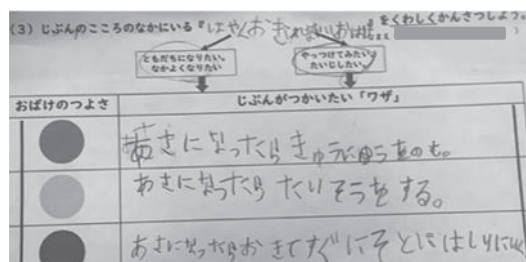 (3)じぶんのこころのなかにいる『はやくおきれないおばけ
をくわしくかんさつしよう。
ともだちになりたい。
なかよくなりたい
やっつけてみたい
たいじしたい。
おばけのつよさ
じぶんがつかいたい「ワザ」
あさになったらぎゅうにゅうをのむ。
あさになったらたいそうをする。
あさになったらおきてすぐにそとにはしりにいく